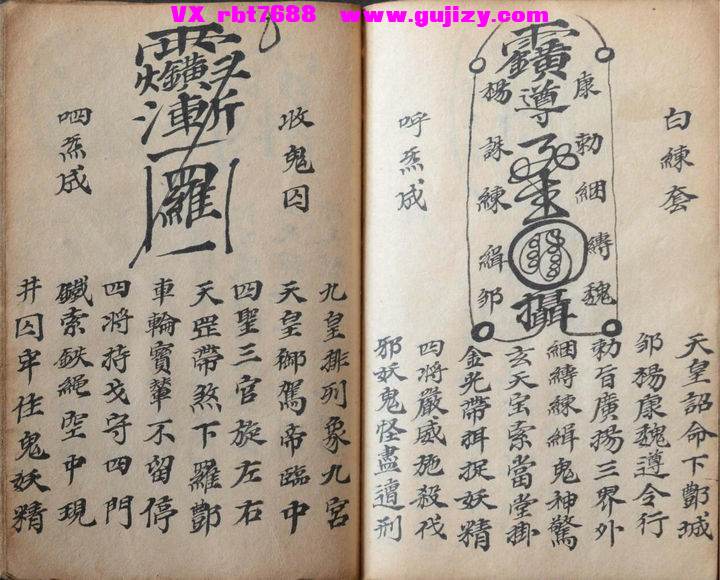 VX rbt7688 www.gujizy.com
白練套
康勅綑縛魏
導
攝
楊誅練緝邹
呼炁成
天皇詔命下酆城
邹楊康魏遵令行
勅旨廣揚三界外
綑縛練緝鬼神驚
玄天宝索當堂掛
金光帶拑捉妖精
四將嚴威施殺伐
邪妖鬼怪盡遭刑
收鬼囚
漸
羅
呬炁成
九皇排列象九宮
天皇御駕帝臨中
四聖三官旋左右
天罡帶煞下羅酆
車輪寶輦不留停
四將持戈守四門
鐵索鉄繩空中現
井囚牢住鬼妖精